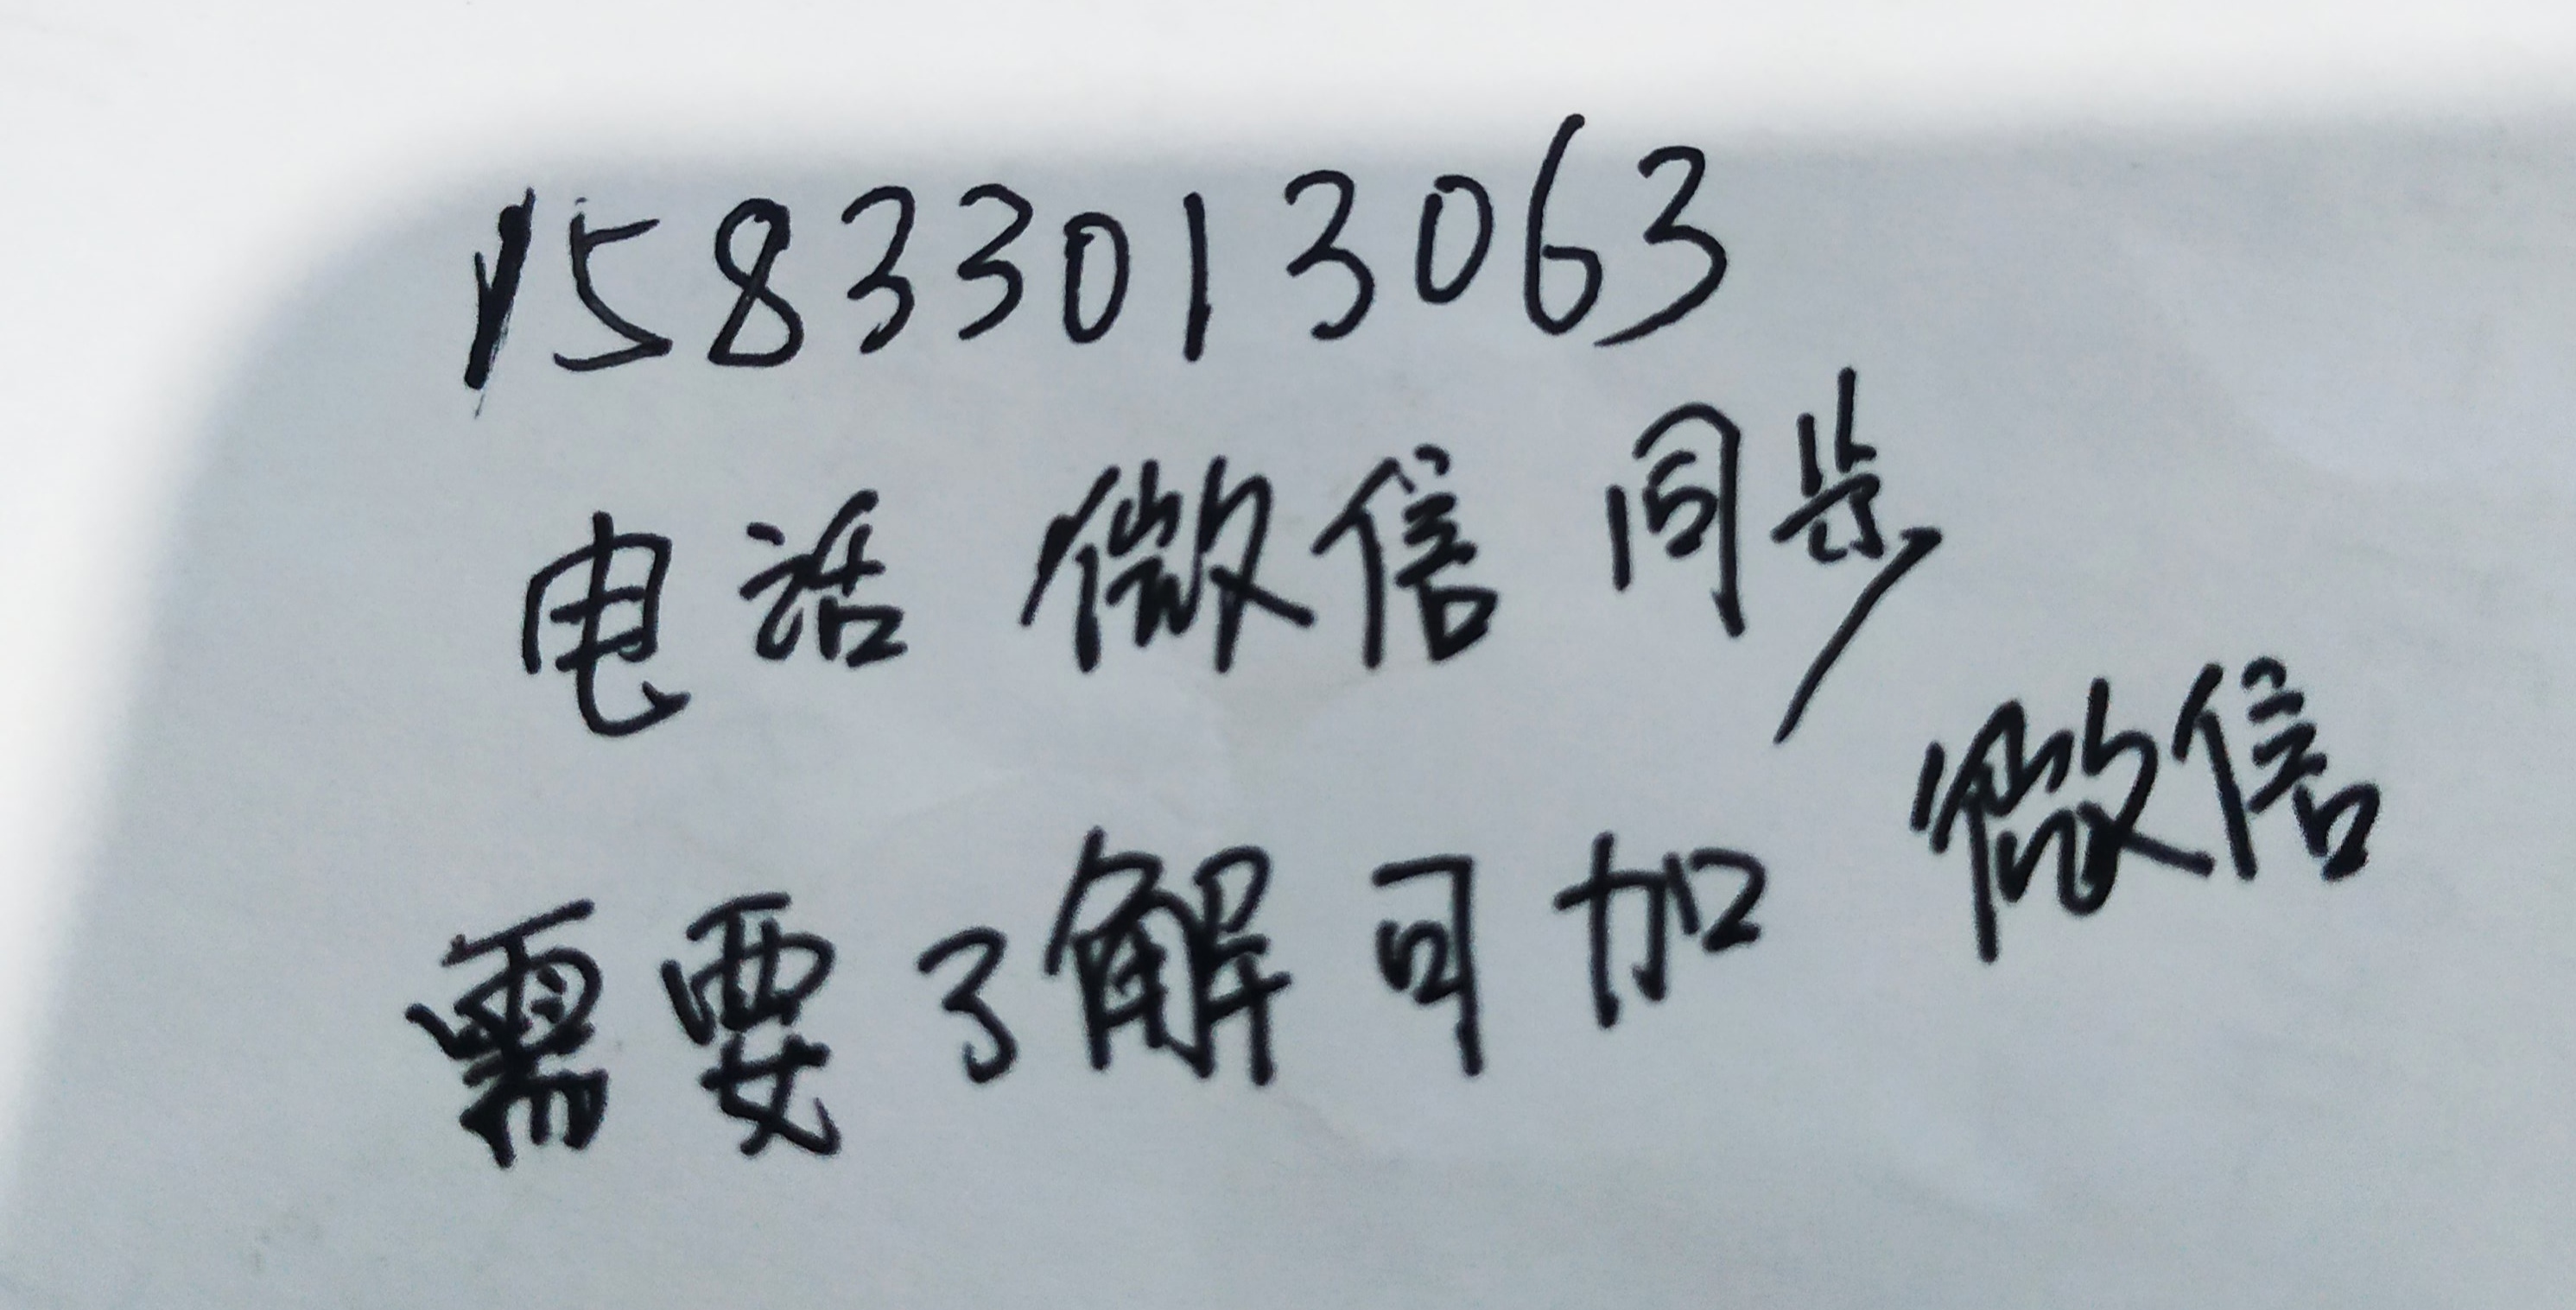 15833013063
电话微信同步
需要了解可加微信